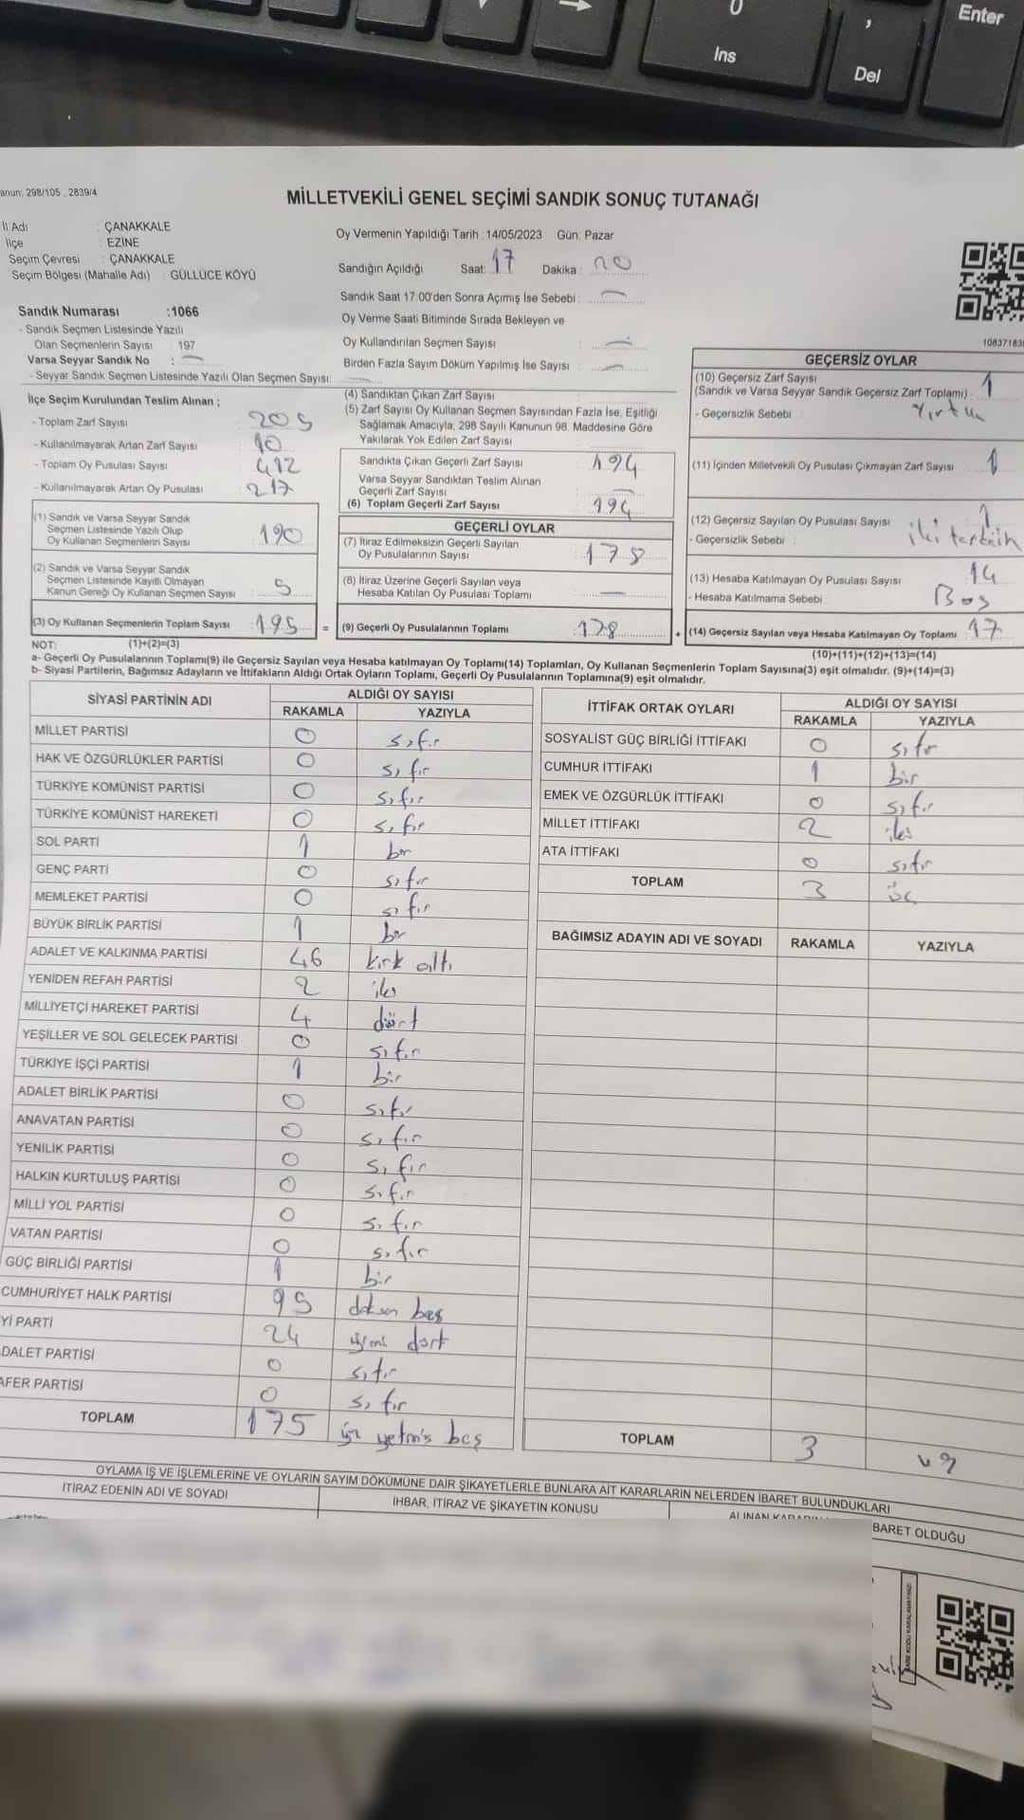 0
Ins
,
Del
Enter
anun: 298/105 _ 2839/4
MİLLETVEKİLİ GENEL SEÇİMİ SANDIK SONUÇ TUTANAĞI
İl Adı : ÇANAKKALE
İlçe : EZİNE
Seçim Çevresi : ÇANAKKALE
Seçim Bölgesi (Mahalle Adı) : GÜLLÜCE KÖYÜ
Sandık Numarası :1066
- Sandık Seçmen Listesinde Yazılı
Olan Seçmenlerin Sayısı : 197
Varsa Seyyar Sandık No : —
- Seyyar Sandık Seçmen Listesinde Yazılı Olan Seçmen Sayısı: —
Oy Vermenin Yapıldığı Tarih :14/05/2023 Gün: Pazar
Sandığın Açıldığı Saat: 17 Dakika : 20
Sandık Saat 17:00'den Sonra Açımış İse Sebebi : —
Oy Verme Saati Bitiminde Sırada Bekleyen ve
Oy Kullandırılan Seçmen Sayısı : —
Birden Fazla Sayım Döküm Yapılmış İse Sayısı : —
1083718
İlçe Seçim Kurulundan Teslim Alınan ;
- Toplam Zarf Sayısı : 205
- Kullanılmayarak Artan Zarf Sayısı : 10
- Toplam Oy Pusulası Sayısı : 412
- Kullanılmayarak Artan Oy Pusulası : 217
(1) Sandık ve Varsa Seyyar Sandık
Seçmen Listesinde Yazılı Olup
Oy Kullanan Seçmenlerin Sayısı : 190
(2) Sandık ve Varsa Seyyar Sandık
Seçmen Listesinde Kayıtlı Olmayan
Kanun Gereği Oy Kullanan Seçmen Sayısı : 5
(3) Oy Kullanan Seçmenlerin Toplam Sayısı : 195 =
(4) Sandıktan Çıkan Zarf Sayısı :
(5) Zarf Sayısı Oy Kullanan Seçmen Sayısından Fazla İse, Eşitliği
Sağlamak Amacıyla, 298 Sayılı Kanunun 98. Maddesine Göre
Yakılarak Yok Edilen Zarf Sayısı :
Sandıkta Çıkan Geçerli Zarf Sayısı : 194
Varsa Seyyar Sandıktan Teslim Alınan
Geçerli Zarf Sayısı : —
(6) Toplam Geçerli Zarf Sayısı : 194
GEÇERLİ OYLAR
(7) İtiraz Edilmeksizin Geçerli Sayılan
Oy Pusulalarının Sayısı : 178
(8) İtiraz Üzerine Geçerli Sayılan veya
Hesaba Katılan Oy Pusulası Toplamı : —
(9) Geçerli Oy Pusulalarının Toplamı : 178 +
GEÇERSİZ OYLAR
(10) Geçersiz Zarf Sayısı
(Sandık ve Varsa Seyyar Sandık Geçersiz Zarf Toplamı) : 1
- Geçersizlik Sebebi : Yırtık
(11) İçinden Milletvekili Oy Pusulası Çıkmayan Zarf Sayısı : 1
(12) Geçersiz Sayılan Oy Pusulası Sayısı : 1
- Geçersizlik Sebebi : iki tercih
(13) Hesaba Katılmayan Oy Pusulası Sayısı : 14
- Hesaba Katılmama Sebebi : Boş
(14) Geçersiz Sayılan veya Hesaba Katılmayan Oy Toplamı : 17
NOT: (1)+(2)=(3)
(10)+(11)+(12)+(13)=(14)
a- Geçerli Oy Pusulalarının Toplamı(9) ile Geçersiz Sayılan veya Hesaba katılmayan Oy Toplamı(14) Toplamları, Oy Kullanan Seçmenlerin Toplam Sayısına(3) eşit olmalıdır. (9)+(14)=(3)
b- Siyasi Partilerin, Bağımsız Adayların ve İttifakların Aldığı Ortak Oyların Toplamı, Geçerli Oy Pusulalarının Toplamına(9) eşit olmalıdır.
SİYASİ PARTİNİN ADI ALDIĞI OY SAYISI
RAKAMLA YAZIYLA
MİLLET PARTİSİ 0 sıfır
HAK VE ÖZGÜRLÜKLER PARTİSİ 0 sıfır
TÜRKİYE KOMÜNİST PARTİSİ 0 sıfır
TÜRKİYE KOMÜNİST HAREKETİ 0 sıfır
SOL PARTİ 1 bir
GENÇ PARTİ 0 sıfır
MEMLEKET PARTİSİ 0 sıfır
BÜYÜK BİRLİK PARTİSİ 1 bir
ADALET VE KALKINMA PARTİSİ 46 kırk altı
YENİDEN REFAH PARTİSİ 2 iki
MİLLİYETÇİ HAREKET PARTİSİ 4 dört
YEŞİLLER VE SOL GELECEK PARTİSİ 0 sıfır
TÜRKİYE İŞÇİ PARTİSİ 1 bir
ADALET BİRLİK PARTİSİ 0 sıfır
ANAVATAN PARTİSİ 0 sıfır
YENİLİK PARTİSİ 0 sıfır
HALKIN KURTULUŞ PARTİSİ 0 sıfır
MİLLİ YOL PARTİSİ 0 sıfır
VATAN PARTİSİ 0 sıfır
GÜÇ BİRLİĞİ PARTİSİ 1 bir
CUMHURİYET HALK PARTİSİ 95 doksan beş
Yİ PARTİ 24 yirmi dört
DALET PARTİSİ 0 sıfır
AFER PARTİSİ 0 sıfır
TOPLAM 175 yüz yetmiş beş
İTTİFAK ORTAK OYLARI ALDIĞI OY SAYISI
RAKAMLA YAZIYLA
SOSYALİST GÜÇ BİRLİĞİ İTTİFAKI 0 sıfır
CUMHUR İTTİFAKI 1 bir
EMEK VE ÖZGÜRLÜK İTTİFAKI 0 sıfır
MİLLET İTTİFAKI 2 iki
ATA İTTİFAKI 0 sıfır
TOPLAM 3 üç
BAĞIMSIZ ADAYIN ADI VE SOYADI RAKAMLA YAZIYLA
TOPLAM 3 üç
OYLAMA İŞ VE İŞLEMLERİNE VE OYLARIN SAYIM DÖKÜMÜNE DAİR ŞİKAYETLERLE BUNLARA AİT KARARLARIN NELERDEN İBARET BULUNDUKLARI
İTİRAZ EDENİN ADI VE SOYADI İHBAR, İTİRAZ VE ŞİKAYETİN KONUSU ALINAN
BARET OLDUĞU